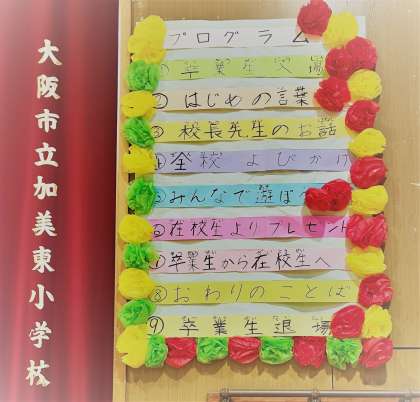 大阪市立加美東小学校
プログラム
① 卒業生入場
② はじめの言葉
③ 校長先生のお話
④ 全校よびかけ
⑤ みんなで遊ぼ
⑥ 在校生よりプレゼント
⑦ 卒業生から在校生へ
⑧ おわりのことば
⑨ 卒業生退場